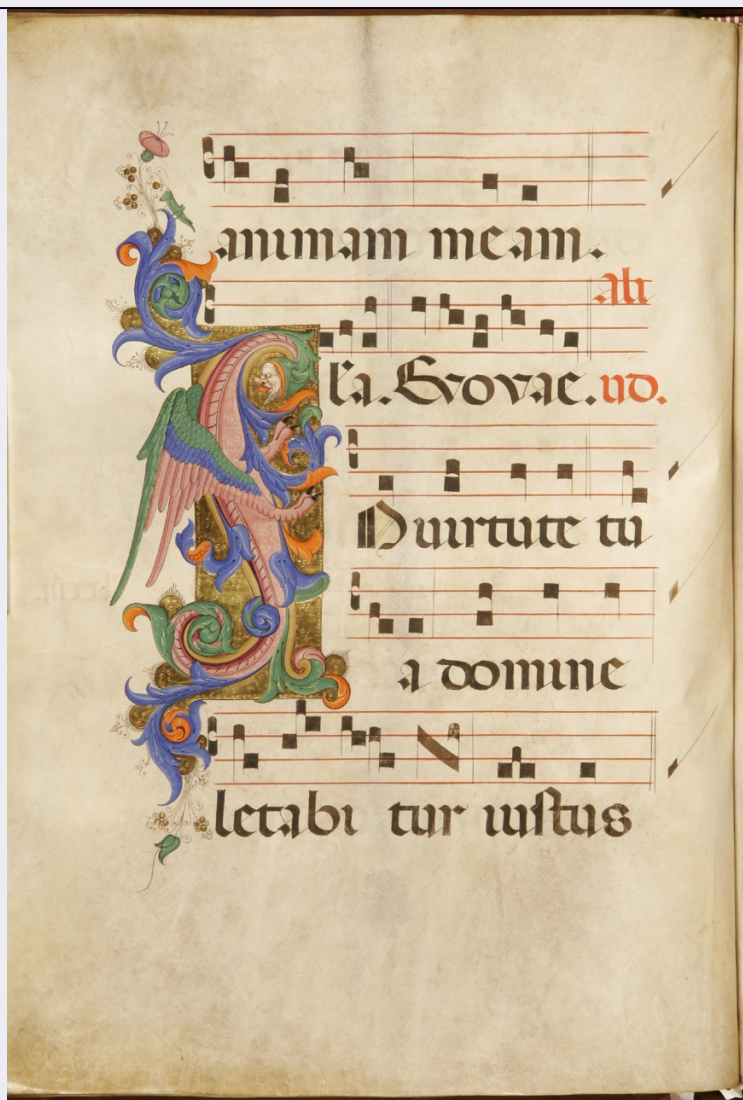 animam meam.
Ali
la. Evovae. ud.
In virtute tu
a domine
letabi tur iustus